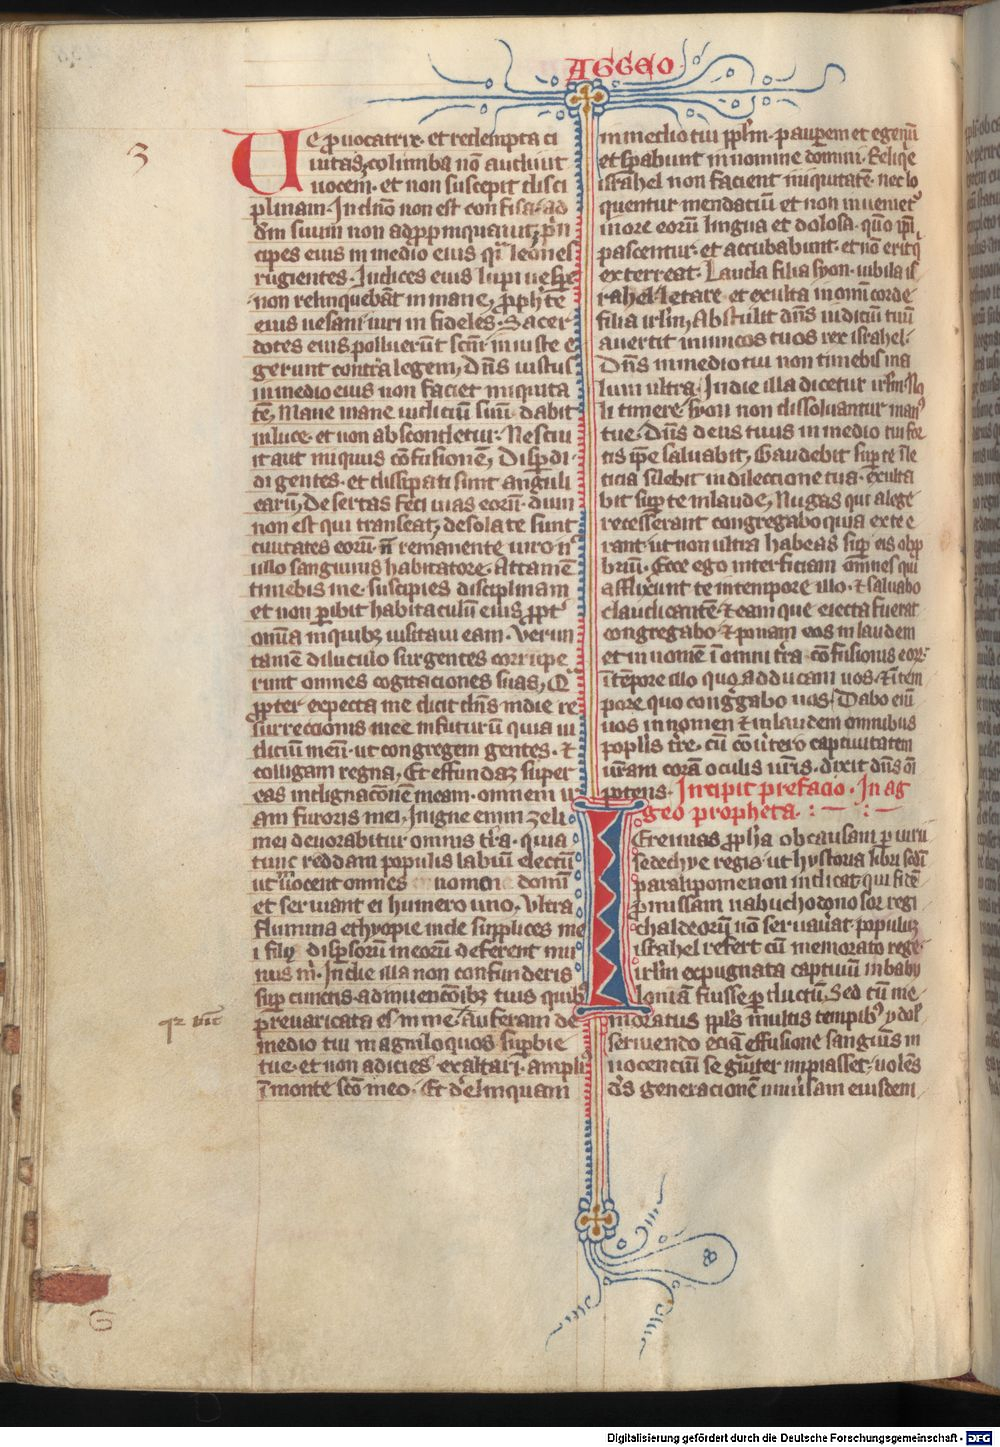 AGGEO
3
Ue prouocatrix. et redempta ci
uitas, columba nō audiuit
uocem. et non suscepit disci
plinam. In dn̄o non est confisa. ad
dm̄ suum non adpropinquauit, pn̄
cipes eius in medio eius qi leones
rugientes. Iudices eius lupi uespe
non relinquebāt in mane, prophete
eius uesani uiri infideles. Sacer
dotes eius polluerūt scm̄ iniuste e
gerunt contra legem, Dn̄s iustus
in medio eius non faciet iniquita
tē, Mane mane iudiciū suū dabit
in luce. et non abscondetur. Nesciu
it aut iniquus cōfusionē, Disperdi
di gentes. et dissipati sunt anguli
earū, Desertas feci uias eorū. dum
non est qui transeat, desolate sunt
ciuitates eorū. n̄ remanente uiro n
ullo sanguinis habitatore. Attamē
timebis me. suscipies disciplinam
et non peribit habitaculū eius propt
om̄ia in quibus uisitaui eam. Verun
tamē diluculo surgentes corrupe
runt omnes cogitaciones suas, Qua
propter expecta me dicit dn̄s in die re
surrectionis mee in futurū quia iu
dicium meū. ut congregem gentes. et
colligam regna, Et effundam super
eas indignacōnē meam. omnem ir
am furoris mei, In igne enim zeli
mei deuorabitur omnis tr̄a. quia
tunc reddam populis labiū electū
ut inuocent omnes nomen domī
et seruiant ei humero uno, Vltra
flumina ethyopie inde supplices me
i filij dispersorū meorū deferent mu
nus m̄. In die illa non confunderis
super cunctis adinuencōibus tuis quibus
preuaricata es in me. auferam de
medio tui magniloquos superbie
tue. et non adicies exaltari ampli
ī monte scō meo. Et derelinquam
in medio tui ppl̄m. pauperem et egenū
et sperabunt in nomine domini. Reliqe
israhel non facient iniquitatē. nec lo
quentur mendaciū et non inuenietur
in ore eorū lingua et dolosa. qm̄ ip̄i
pascentur. et accubabunt. et nō erit qi
exterreat. Lauda filia syon. iubila is
rahel. letare et exulta in omī corde
filia irl̄m, Abstulit dn̄s iudiciū tuū
auertit inimicos tuos rex israhel.
Dn̄s in medio tui non timebis ma
lum ultra. In die illa dicetur irl̄m. No
li timere. syon non dissoluantur manus
tue. Dn̄s deus tuus in medio tui for
tis ipse saluabit, Gaudebit super te ī le
ticia silebit in dileccione tua. exulta
bit super te in laude, Nugas qui a lege
recesserant congregabo quia ex te e
rant. ut non ultra habeas super eis obpro
brium. Ecce ego interficiam omnes qui
afflixerunt te in tempore illo. et saluabo
claudicantē. et eam que eiecta fuerat
congregabo. et ponam eos in laudem
et in nomē ī omni tr̄a confusionis eorum.
ī tempore illo quo adducam uos. et ī tem
pore quo congregabo uos. Dabo enī
uos in nomen et in laudem omnibus
populis tr̄e. cū cōuertero captiuitatem
ur̄am corā oculis ur̄is. dixit dn̄s om̄
ptens. Incipit prefacio. In ag
geo propheta.
Ieremias propha ob causam periurii
sedechye regis. ut hystoria libri sc̄di
paralipomenon indicat. qui fidē
promissam nabuchodonosor regi
chaldeorū nō seruauerat. populum
israhel refert cū memorato rege.
irl̄m expugnata captiuū in baby
loniā fuisse perductū. Sed cū me
moratus ppl̄s multis temporibus ydol
seruiendo eciā effusione sanguis in
nocenciū se grauiter impiasset. uolēs
ds̄ generacionē uniuersam eiusdem